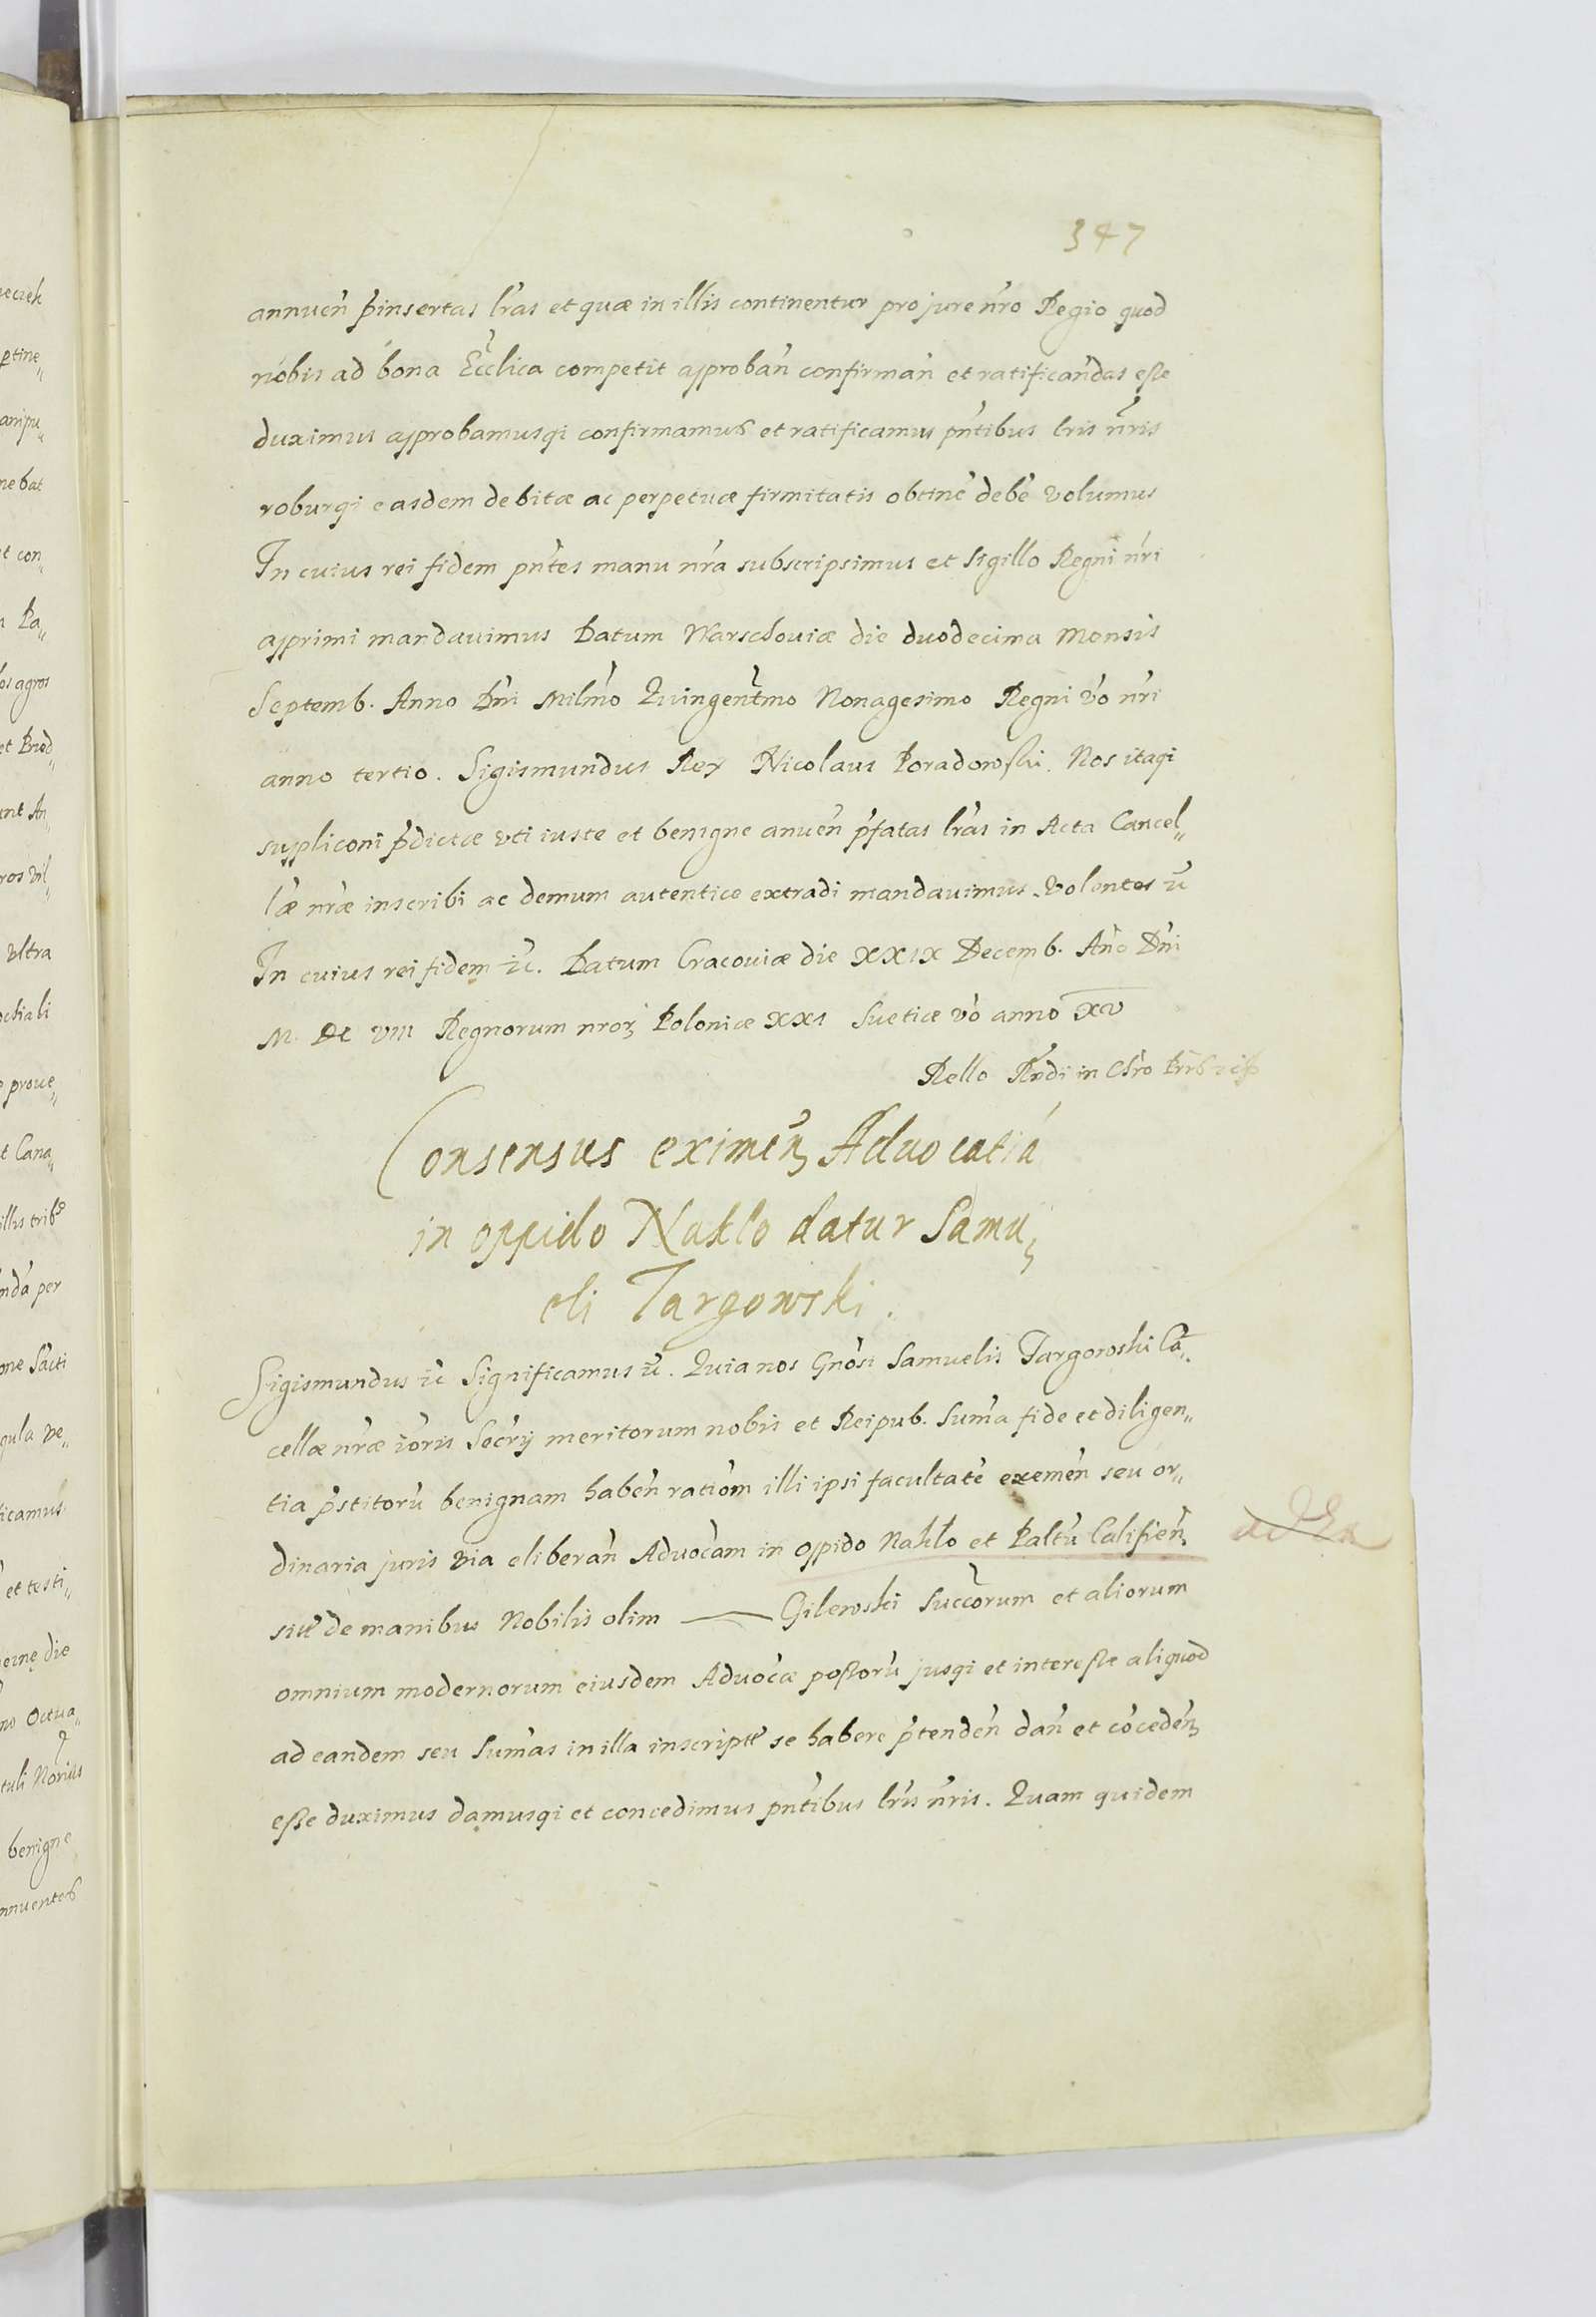 347
annuen̄ p̄insertas lr̄as et quæ in illis continentur pro jure nr̄o Regio quod
nobis ad bona Ecc̄lica competit approban̄ confirman̄ et ratificandas esse
duximus approbamusqi confirmamus et ratificamus pn̄tibus lris nr̄is
roburqi easdem debitæ ac perpetuæ firmitatis obtinē debē volumus
In cuius rei fidem pn̄tes manu nr̄a subscripsimus et Sigillo Regni nr̄i
apprimi mandauimus Datum Warschouiæ die duodecima Mensis
Septemb. Anno Dn̄i Milmō Quingentm̄o Nonagesimo Regni vō nr̄i
anno tertio. Sigismundus Rex Nicolaus Poradowski. Nos itaqi
suppliconi p̄dictæ vti iuste et benigne anuen̄ p̄fatas lr̄as in Acta Cancel„
læ nr̄æ inscribi ac demum autentice extradi mandauimus. Volentes ꝛc̄
In cuius rei fidem ꝛc̄. Datum Cracouiæ die XXIX Decemb. Anō Dn̄i
M. DC VIII Regnorum nror̨ Poloniæ XXI Suetiæ vō anno XV
Rello Rn̄di in Chr̄o
Consensus eximen̄ Aduocatiā
in oppido Naklo datur Samu„
eli Targowski.
Sigismundus ꝛc̄ Significamus ꝛc̄. Quia nos Gnōsi Samuelis Targowski Cā„
cellæ nr̄æ Secr̄ij meritorum nobis et Reipub. Sum̄a fide et diligen„
tia p̄stitorū benignam haben̄ ratiōm illi ipsi facultatē exemen̄ seu or„
dinaria juris via eliberan̄ Aduocām in oppido Nakło et Paltū Calisien̄
siue de manibus Nobilis olim —— Gilewski Succ̄orum et aliorum
omnium modernorum eiusdem Aduocæ possorū jusqi et interesse aliquod
ad eandem seu Sum̄as in illa inscriptas se habere p̄tenden̄ dan̄ et cōceden̄
esse duximus damusqi et concedimus pn̄tibus lr̄is nr̄is. Quam quidem